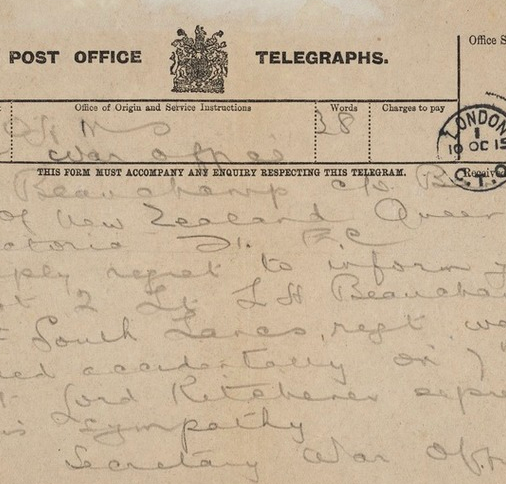 POST OFFICE TELEGRAPHS.
Office S
Office of Origin and Service Instructions Words Charges to pay
38
LONDON
1
10 OC 15
C.T.O
War Office
THIS FORM MUST ACCOMPANY ANY ENQUIRY RESPECTING THIS TELEGRAM. Received
Beauchamp c/o B
Of New Zealand Queen
toria St. E C
ply regret to inform y
t 2 Lt L H Beaucha
South Lancs, regt. w
ed accidentally on 7
t Lord Kitchener expre
is sympathy
Secretary War Off